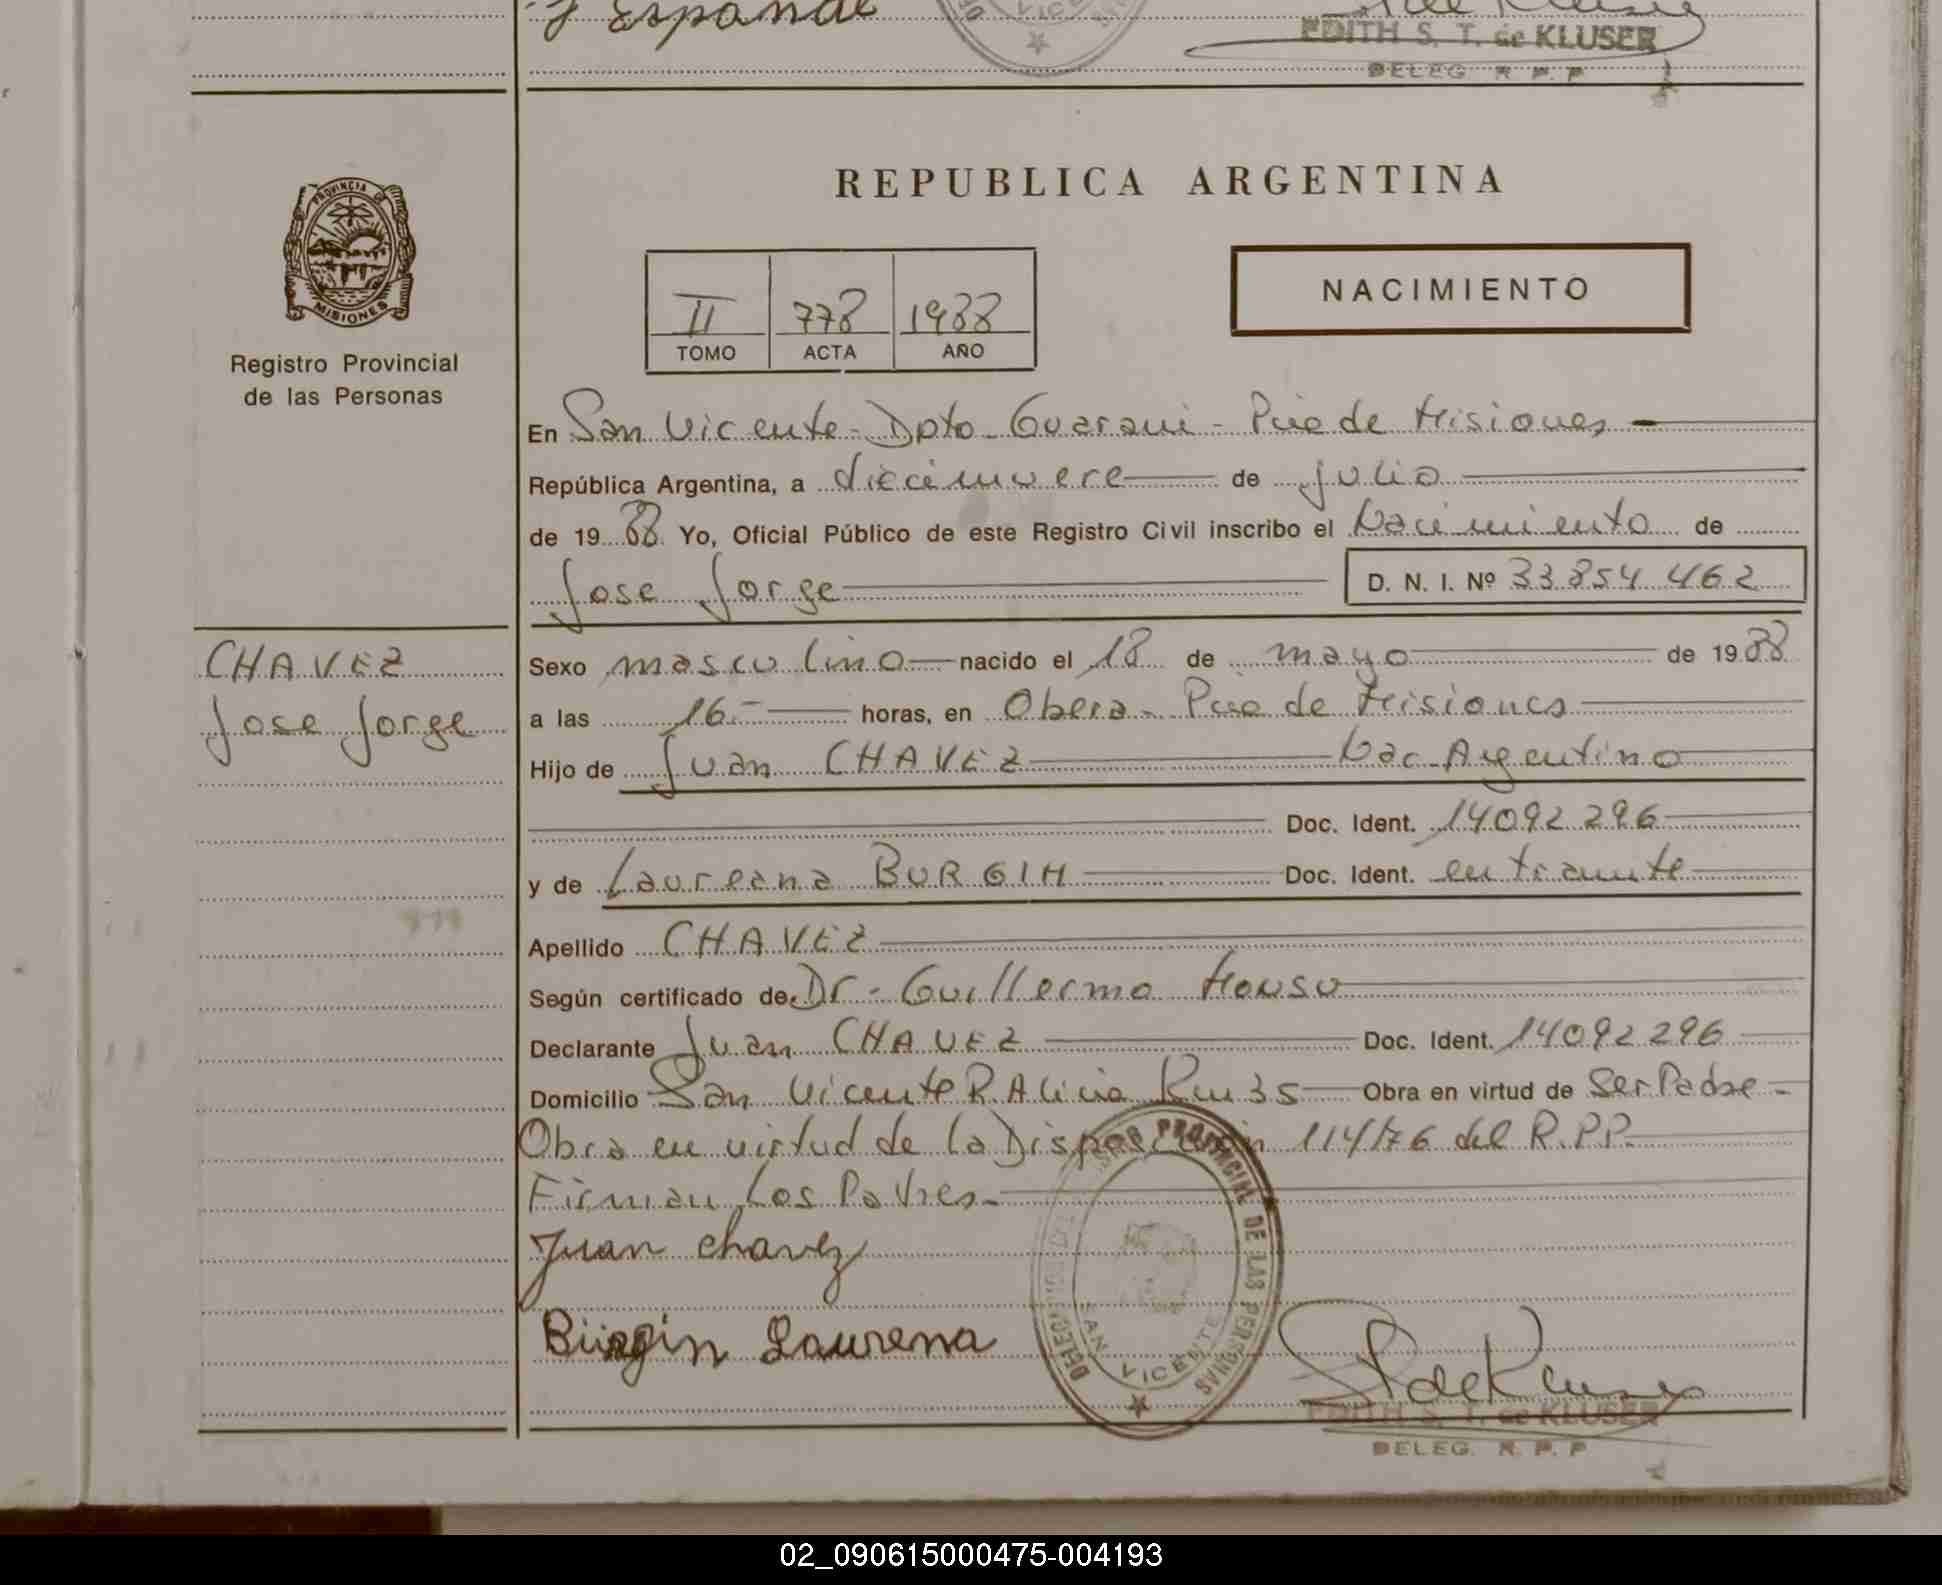 y Español
EDITH S. T. de KLUSER
DELEG. R. P. P
PROVINCIA
MISIONES
Registro Provincial
de las Personas
REPUBLICA ARGENTINA
II 778 1988
TOMO ACTA AÑO
NACIMIENTO
En San Vicente - Dpto - Guarani - Pcia de Misiones
República Argentina, a diecinueve de julio
de 19 88 Yo, Oficial Público de este Registro Civil inscribo el Nacimiento de
Jose Jorge D. N. I. Nº 33 854 462
CHAVEZ
Jose Jorge
Sexo masculino nacido el 18 de mayo de 19 88
a las 16.- horas, en Obera - Pcia de Misiones
Hijo de Juan CHAVEZ Nac. Argentino
Doc. Ident. 14092296
y de Laureana BURGIN Doc. Ident. en tramite
Apellido CHAVEZ
Según certificado de Dr - Guillermo
Declarante Juan CHAVEZ Doc. Ident. 14092296
Domicilio San Vicente R. Alicia Km 35 Obra en virtud de Ser Padre -
Obra en virtud de la Disposición 114/76 del R.P.P.
Firman Los Padres -
Juan chavez
Bürgin Laurena
DELEG PROVINCIAL DE LAS PERSONAS
SAN VICENTE
S T de Kluser
EDITH S. T. de KLUSER
DELEG. R. P. P
02_090615000475-004193